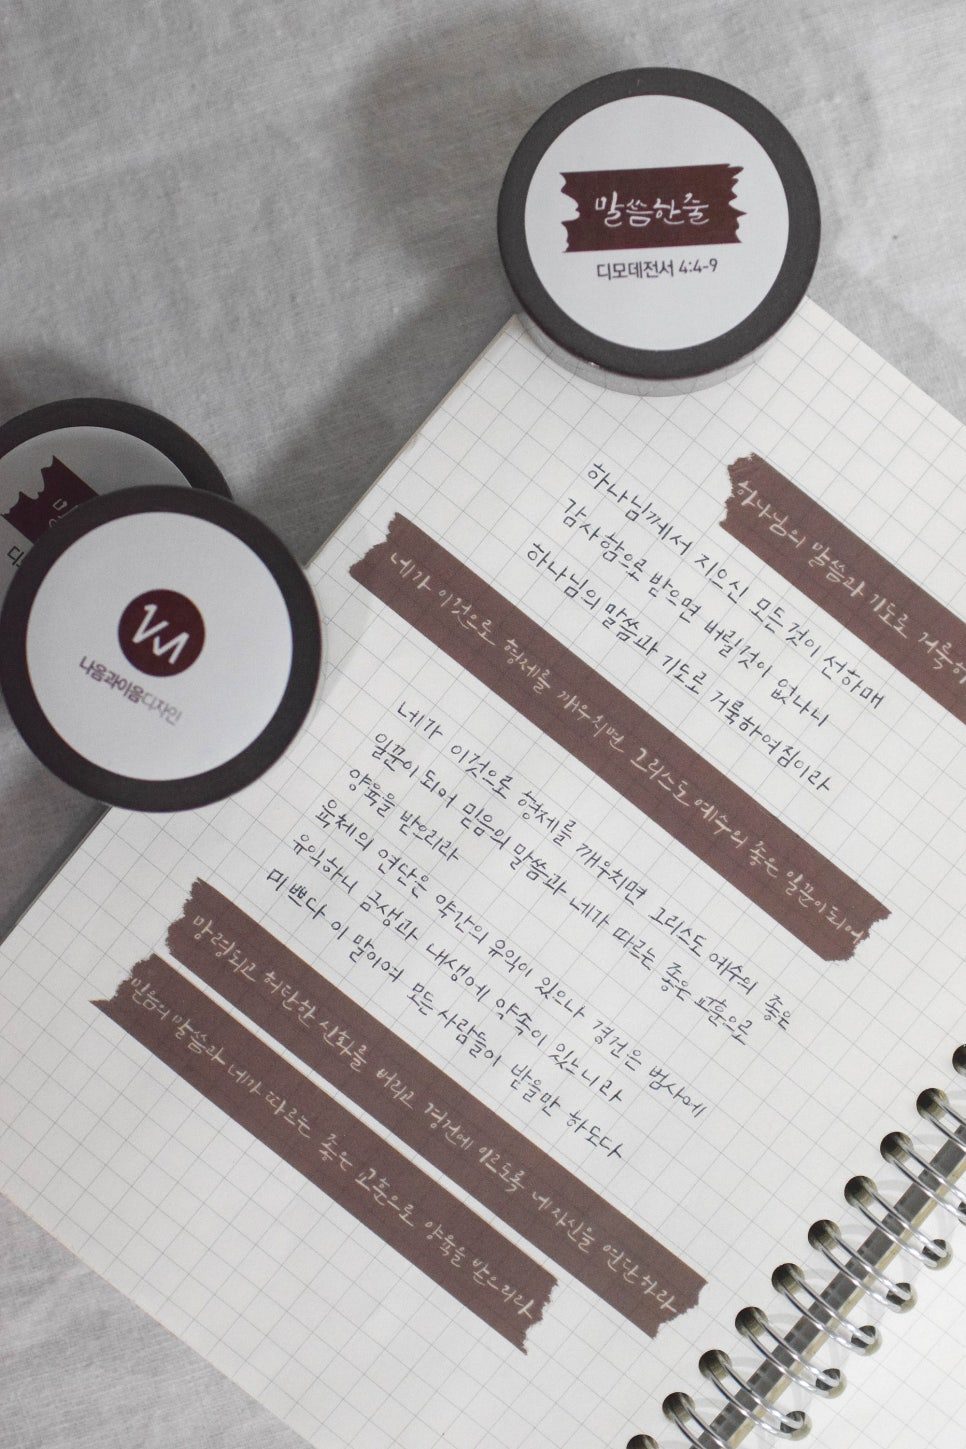 말씀한줄
디모데전서 4:4-9
나음과이음디자인
하나님의 말씀과 기도로 거룩하
하나님께서 지으신 모든것이 선하매
감사함으로 받으면 버릴것이 없나니
하나님의 말씀과 기도로 거룩하여짐이라
네가 이것으로 형제를 깨우치면 그리스도 예수의 좋은 일꾼이되어
네가 이것으로 형제를 깨우치면 그리스도 예수의 좋은
일꾼이 되어 믿음의 말씀과 네가 따르는 좋은 교훈으로
양육을 받으리라
육체의 연단은 약간의 유익이 있으나 경건은 범사에
유익하니 금생과 내생에 약속이 있느니라
미쁘다 이 말이여 모든 사람들이 받을만 하도다
망령되고 허탄한 신화를 버리고 경건에 이르도록 네 자신을 연단하라
믿음의 말씀과 네가 따르는 좋은 교훈으로 양육을 받으리라